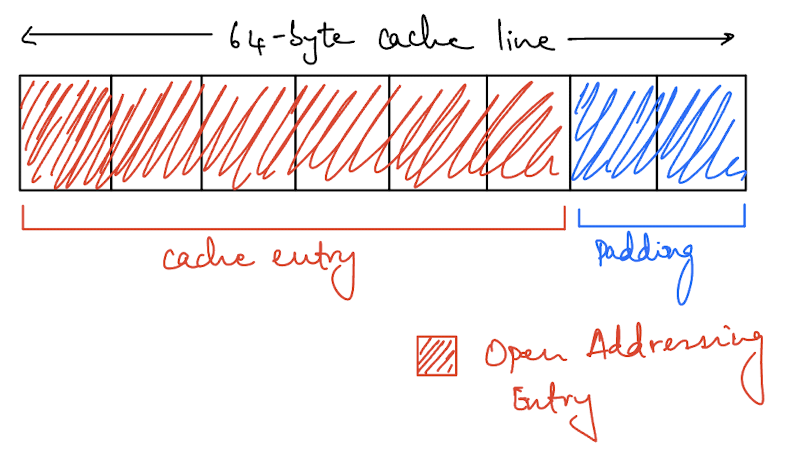 64-byte cache line
cache entry
Padding
Open Addressing
Entry